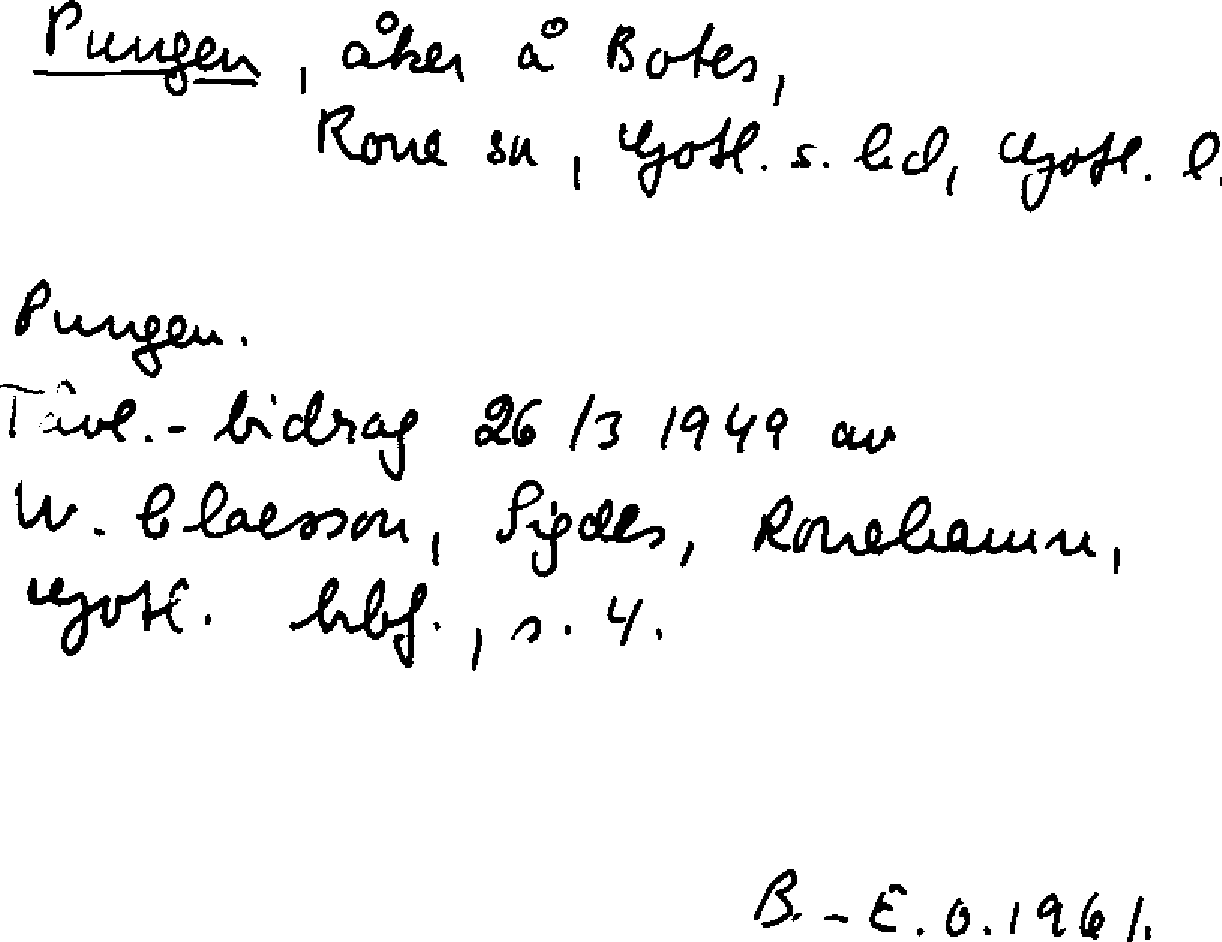 Pungen, åker å Botes,
Rone sn, Gotl. s. hd, Gotl. l.
Pungen.
Tävl.-bidrag 26/3 1949 av
W. Claesson, Sigdes, Ronehamn,
Gotl. hbf., s. 4.
B.-E. O. 1961.